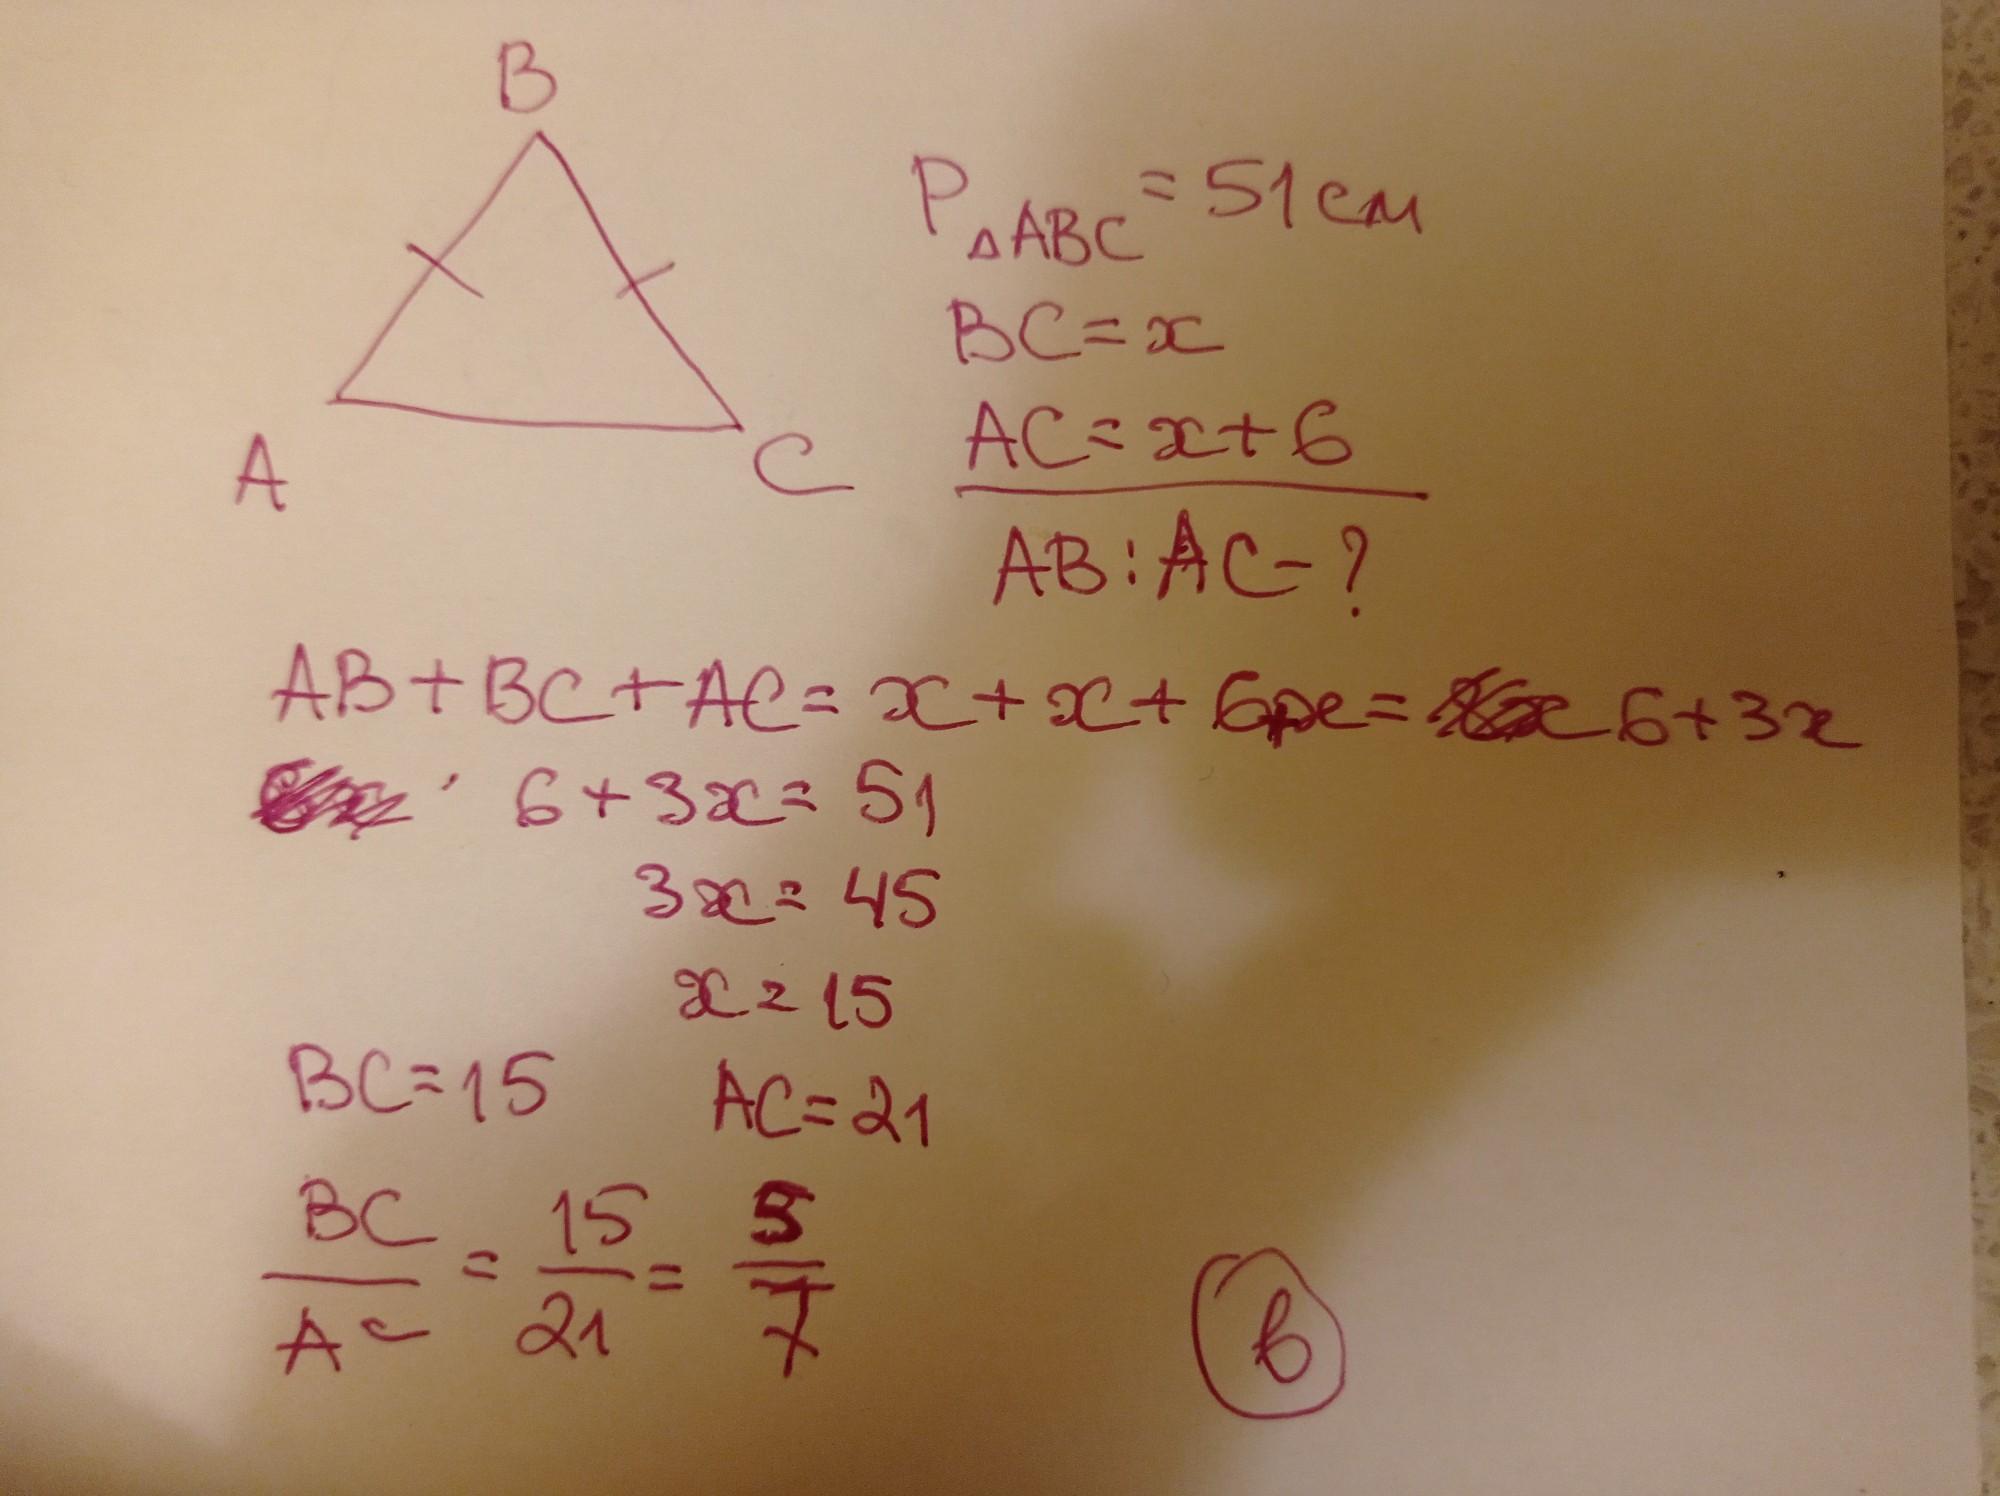 B
A
C
P△ABC = 51 см
BC = x
AC = x + 6
AB : AC - ?
AB + BC + AC = x + x + 6 + x = 6 + 3x
6 + 3x = 51
3x = 45
x = 15
BC = 15 AC = 21
BC/AC = 15/21 = 5/7
в